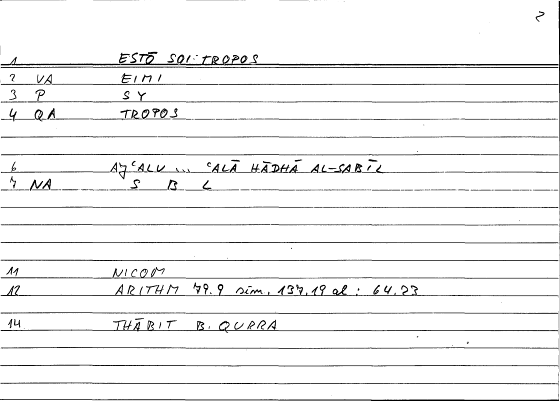 2
1 ESTŌ SOI: TROPOS
2 VA EIMI
3 P SY
4 QA TROPOS
6 AǦʿALU ... ʿALĀ HĀDHĀ AL-SABĪL
7 NA S B L
11 NICOM
12 ARITHM 79.9 sim. 137.19 al: 64.23
14 THĀBIT B. QURRA